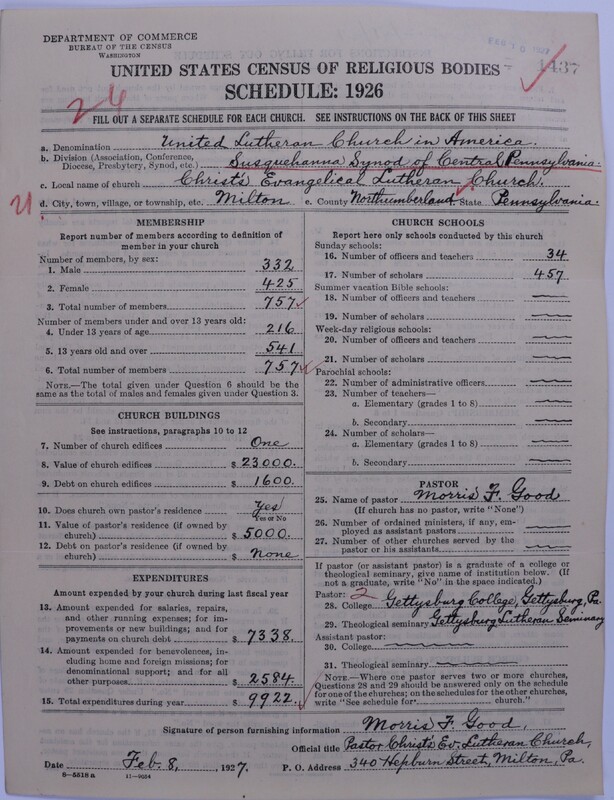 DEPARTMENT OF COMMERCE
BUREAU OF THE CENSUS
WASHINGTON
1437
UNITED STATES CENSUS OF RELIGIOUS BODIES
SCHEDULE: 1926
24
FILL OUT A SEPARATE SCHEDULE FOR EACH CHURCH. SEE INSTRUCTIONS ON THE BACK OF THIS SHEET
a. Denomination United Lutheran Church in America.
b. Division (Association, Conference, Diocese, Presbytery, Synod, etc.) Susquehanna Synod of Central Pennsylvania.
c. Local name of church Christ's Evangelical Lutheran Church.
d. City, town, village, or township, etc. Milton e. County Northumberland State Pennsylvania.
MEMBERSHIP
Report number of members according to definition of
member in your church
Number of members, by sex:
1. Male 332
2. Female 425
3. Total number of members 757
Number of members under and over 13 years old:
4. Under 13 years of age 216
5. 13 years old and over 541
6. Total number of members 757
NOTE.—The total given under Question 6 should be
same as the total of males and females given under Question 3.
CHURCH BUILDINGS
See instructions, paragraphs 10 to 12
7. Number of church edifices One
8. Value of church edifices $ 23000.
9. Debt on church edifices $ 1600.
10. Does church own pastor's residence Yes
Yes or No
11. Value of pastor's residence (if owned by
church) $ 5000.
12. Debt on pastor's residence (if owned by
church) $ None
EXPENDITURES
Amount expended by your church during last fiscal year
13. Amount expended for salaries, repairs,
and other running expenses; for im-
provements or new buildings; and for
payments on church debt $ 7338.
14. Amount expended for benevolences, in-
cluding home and foreign missions; for
denominational support; and for all
other purposes $ 2584
15. Total expenditures during year $ 9922.
CHURCH SCHOOLS
Report here only schools conducted by this church
Sunday schools:
16. Number of officers and teachers 34
17. Number of scholars 457
Summer vacation Bible schools:
18. Number of officers and teachers
19. Number of scholars
Week-day religious schools:
20. Number of officers and teachers
21. Number of scholars
Parochial schools:
22. Number of administrative officers
23. Number of teachers—
a. Elementary (grades 1 to 8)
b. Secondary
24. Number of scholars—
a. Elementary (grades 1 to 8)
b. Secondary
PASTOR
25. Name of pastor Morris F. Good
(If church has no pastor, write "None")
26. Number of ordained ministers, if any, em-
ployed as assistant pastors
27. Number of other churches served by the
pastor or his assistants
If pastor (or assistant pastor) is a graduate of a college or
theological seminary, give name of institution below. (If
not a graduate, write "No" in the space indicated.)
Pastor: 2
28. College Gettysburg College, Gettysburg, Pa.
29. Theological seminary Gettysburg Lutheran Seminary
Assistant pastor:
30. College
31. Theological seminary
NOTE.—Where one pastor serves two or more churches,
Questions 28 and 29 should be answered only on the schedule
for one of the churches; on the schedules for the other churches,
write "See schedule for church."
Signature of person furnishing information Morris F. Good,
Official title Pastor Christ's Ev. Lutheran Church,
Date Feb. 8, 1927. P. O. Address 340 Hepburn Street, Milton, Pa.
6-5518a 11-9054